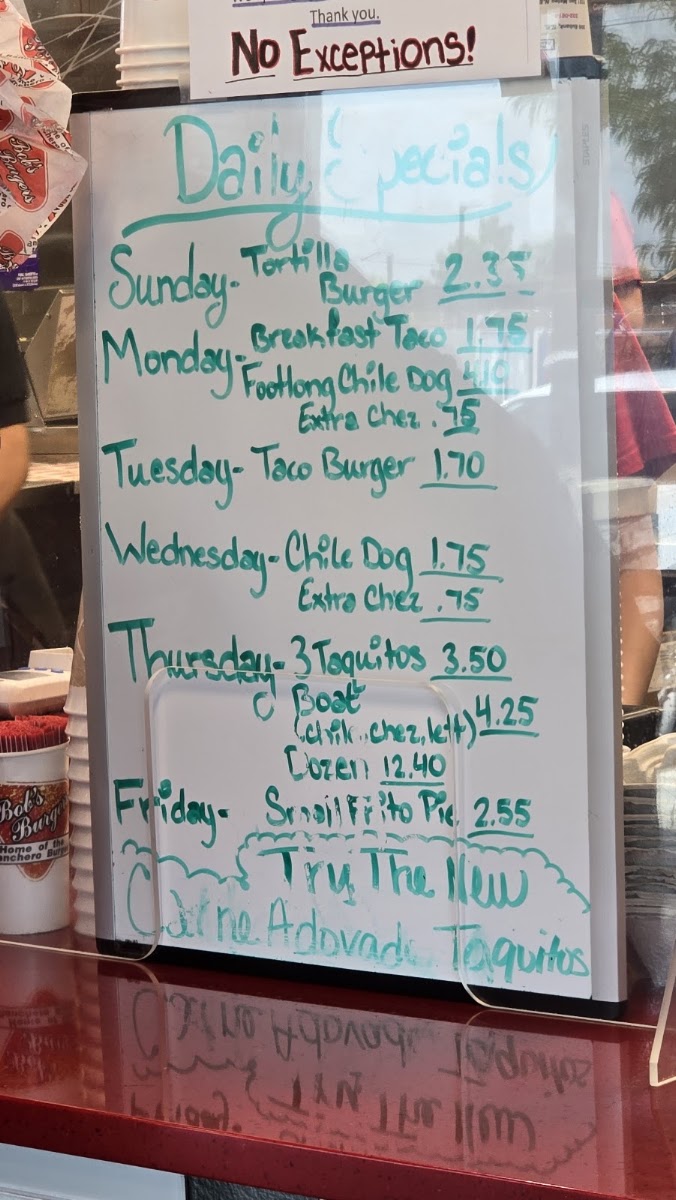 Thank you.
No Exceptions!
Daily Specials
Sunday- Tortilla
Burger 2.35
Monday- Breakfast Taco 1.75
Footlong Chile Dog
Extra Chez .75
Tuesday- Taco Burger 1.70
Wednesday- Chile Dog 1.75
Extra Chez .75
Thursday- 3 Taquitos 3.50
Boat
(chik, chez, lett) 4.25
Dozen 12.40
Friday- Small Frito Pie 2.55
Try The New
Carne Adovada Taquitos
Bob's
Burgers
Bob's
Burgers
Home of the
Ranchero Burger